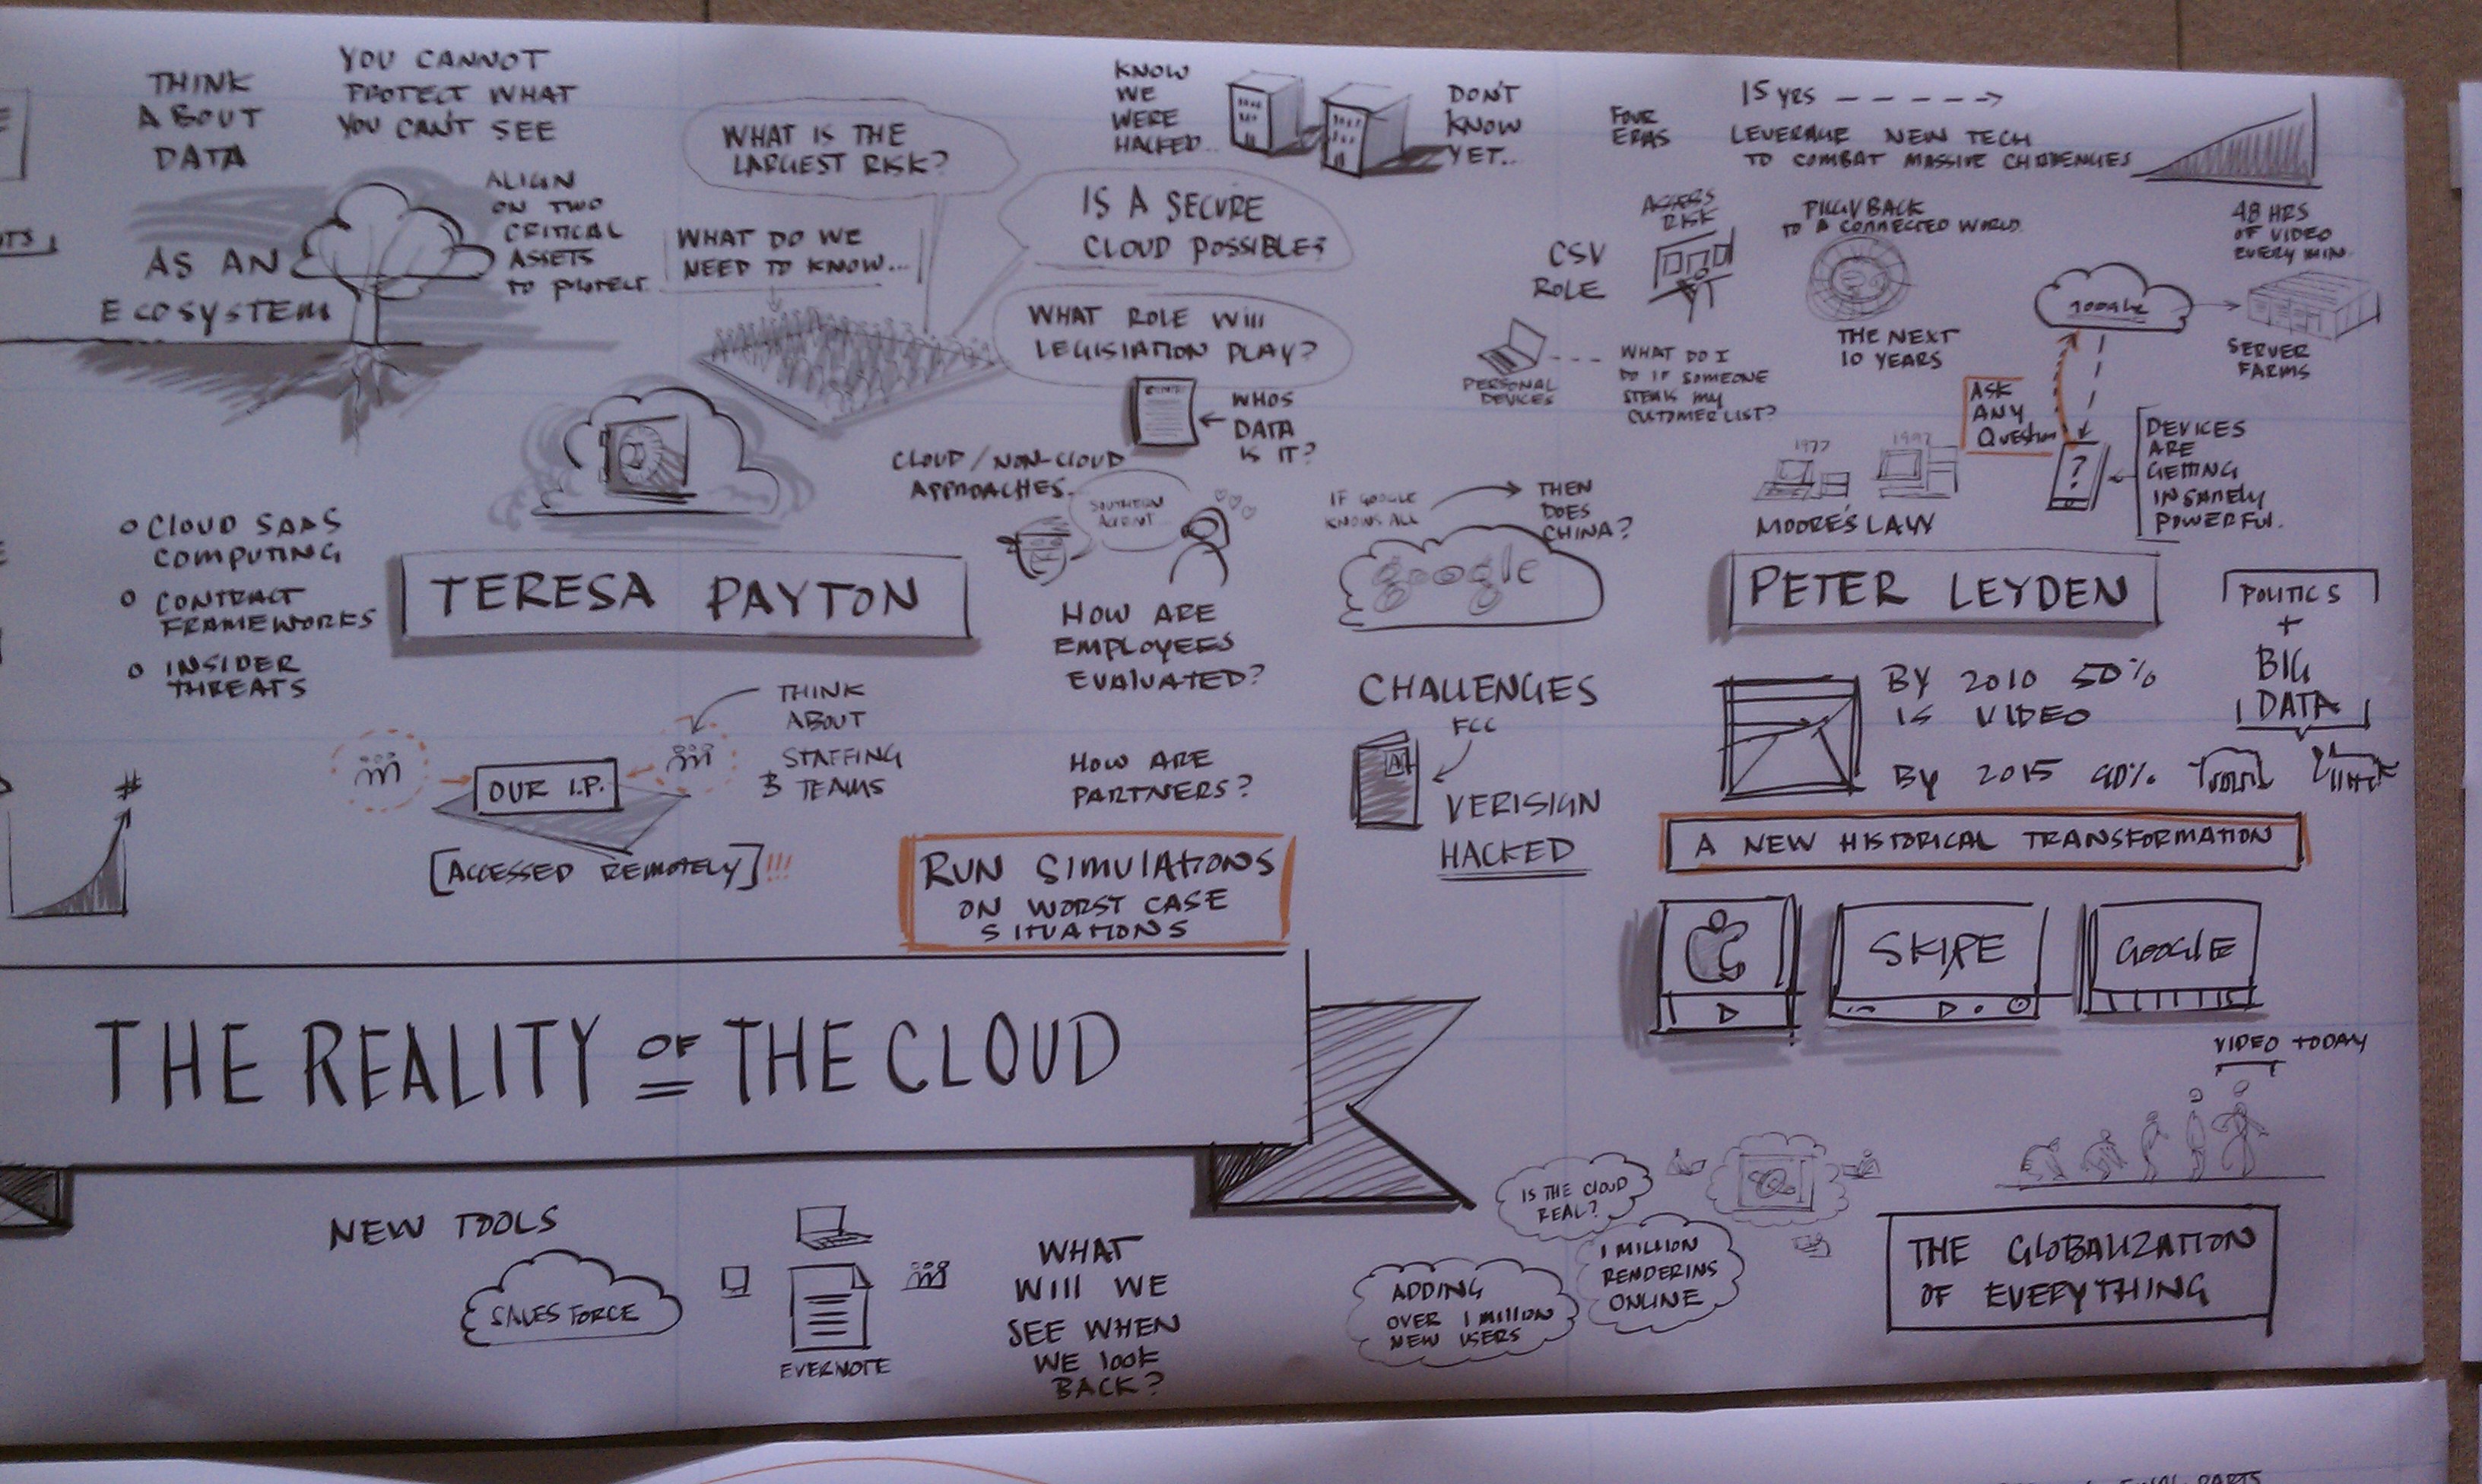 THINK
ABOUT
DATA
AS AN
ECOSYSTEM
YOU CANNOT
PROTECT WHAT
YOU CAN'T SEE
ALIGN
ON TWO
CRITICAL
ASSETS
TO PROTECT
WHAT IS THE
LARGEST RISK?
WHAT DO WE
NEED TO KNOW...
IS A SECURE
CLOUD POSSIBLE?
WHAT ROLE WILL
LEGISLATION PLAY?
KNOW
WE
WERE
HACKED...
DON'T
KNOW
YET...
WHOS
DATA
IS IT?
CLOUD / NON-CLOUD
APPROACHES
SOUTHERN
ACCENT
HOW ARE
EMPLOYEES
EVALUATED?
HOW ARE
PARTNERS?
CLOUD SAAS
COMPUTING
CONTRACT
FRAMEWORKS
INSIDER
THREATS
TERESA PAYTON
THINK
ABOUT
STAFFING
& TEAMS
OUR I.P.
[ACCESSED REMOTELY]!!!
#
RUN SIMULATIONS
ON WORST CASE
SITUATIONS
IF GOOGLE
KNOWS ALL
THEN
DOES
CHINA?
google
CHALLENGES
FCC
A
VERISIGN
HACKED
FOUR
ERAS
15 YRS
LEVERAGE NEW TECH
TO COMBAT MASSIVE CHALLENGES
CSV
ROLE
ACCESS
RISK
PERSONAL
DEVICES
WHAT DO I
DO IF SOMEONE
STEALS MY
CUSTOMER LIST?
PIGGYBACK
TO A CONNECTED WORLD
THE NEXT
10 YEARS
48 HRS
OF VIDEO
EVERY MIN.
GOOGLE
SERVER
FARMS
ASK
ANY
QUESTION
?
DEVICES
ARE
GETTING
INSANELY
POWERFUL.
1977
1997
MOORE'S LAW
PETER LEYDEN
POLITICS
+
BIG
DATA
BY 2010 50%
IS VIDEO
BY 2015 90%
A NEW HISTORICAL TRANSFORMATION
SKIPE
GOOGLE
VIDEO TODAY
THE REALITY OF THE CLOUD
NEW TOOLS
SALES FORCE
EVERNOTE
WHAT
WILL WE
SEE WHEN
WE LOOK
BACK?
IS THE CLOUD
REAL?
1 MILLION
RENDERINS
ONLINE
ADDING
OVER 1 MILLION
NEW USERS
THE GLOBALIZATION
OF EVERYTHING